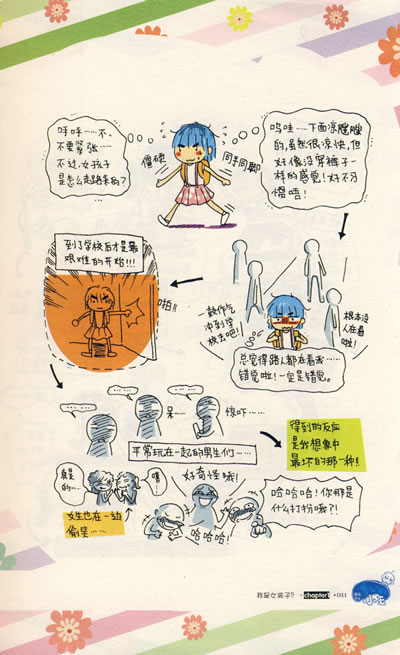 呼呼……不、
不要緊張……
不过,女孩子
是怎么走路来的？
僵硬
同手同脚
呜哇……下面凉飕飕
的,虽然很凉快,但
好像没穿裤子一
样的感觉!好不习
惯唔!
到了学校后才是最
艰难的开始!!!
啪!!
一鼓作气
冲到学
校去吧!!
根本没
人在看
啦!
总觉得路人都在看我……
错觉啦!一定是错觉。
呆……
惊吓……
平常玩在一起的男生们……
得到的反应
是我想象中
最坏的那一种!!
真是
的……
嘻……
女生也在一边
偷笑……
好奇怪哦!
哈哈哈!
哈哈哈!你那是
什么打扮啊?!
我是女孩子? · chapter1 · 011